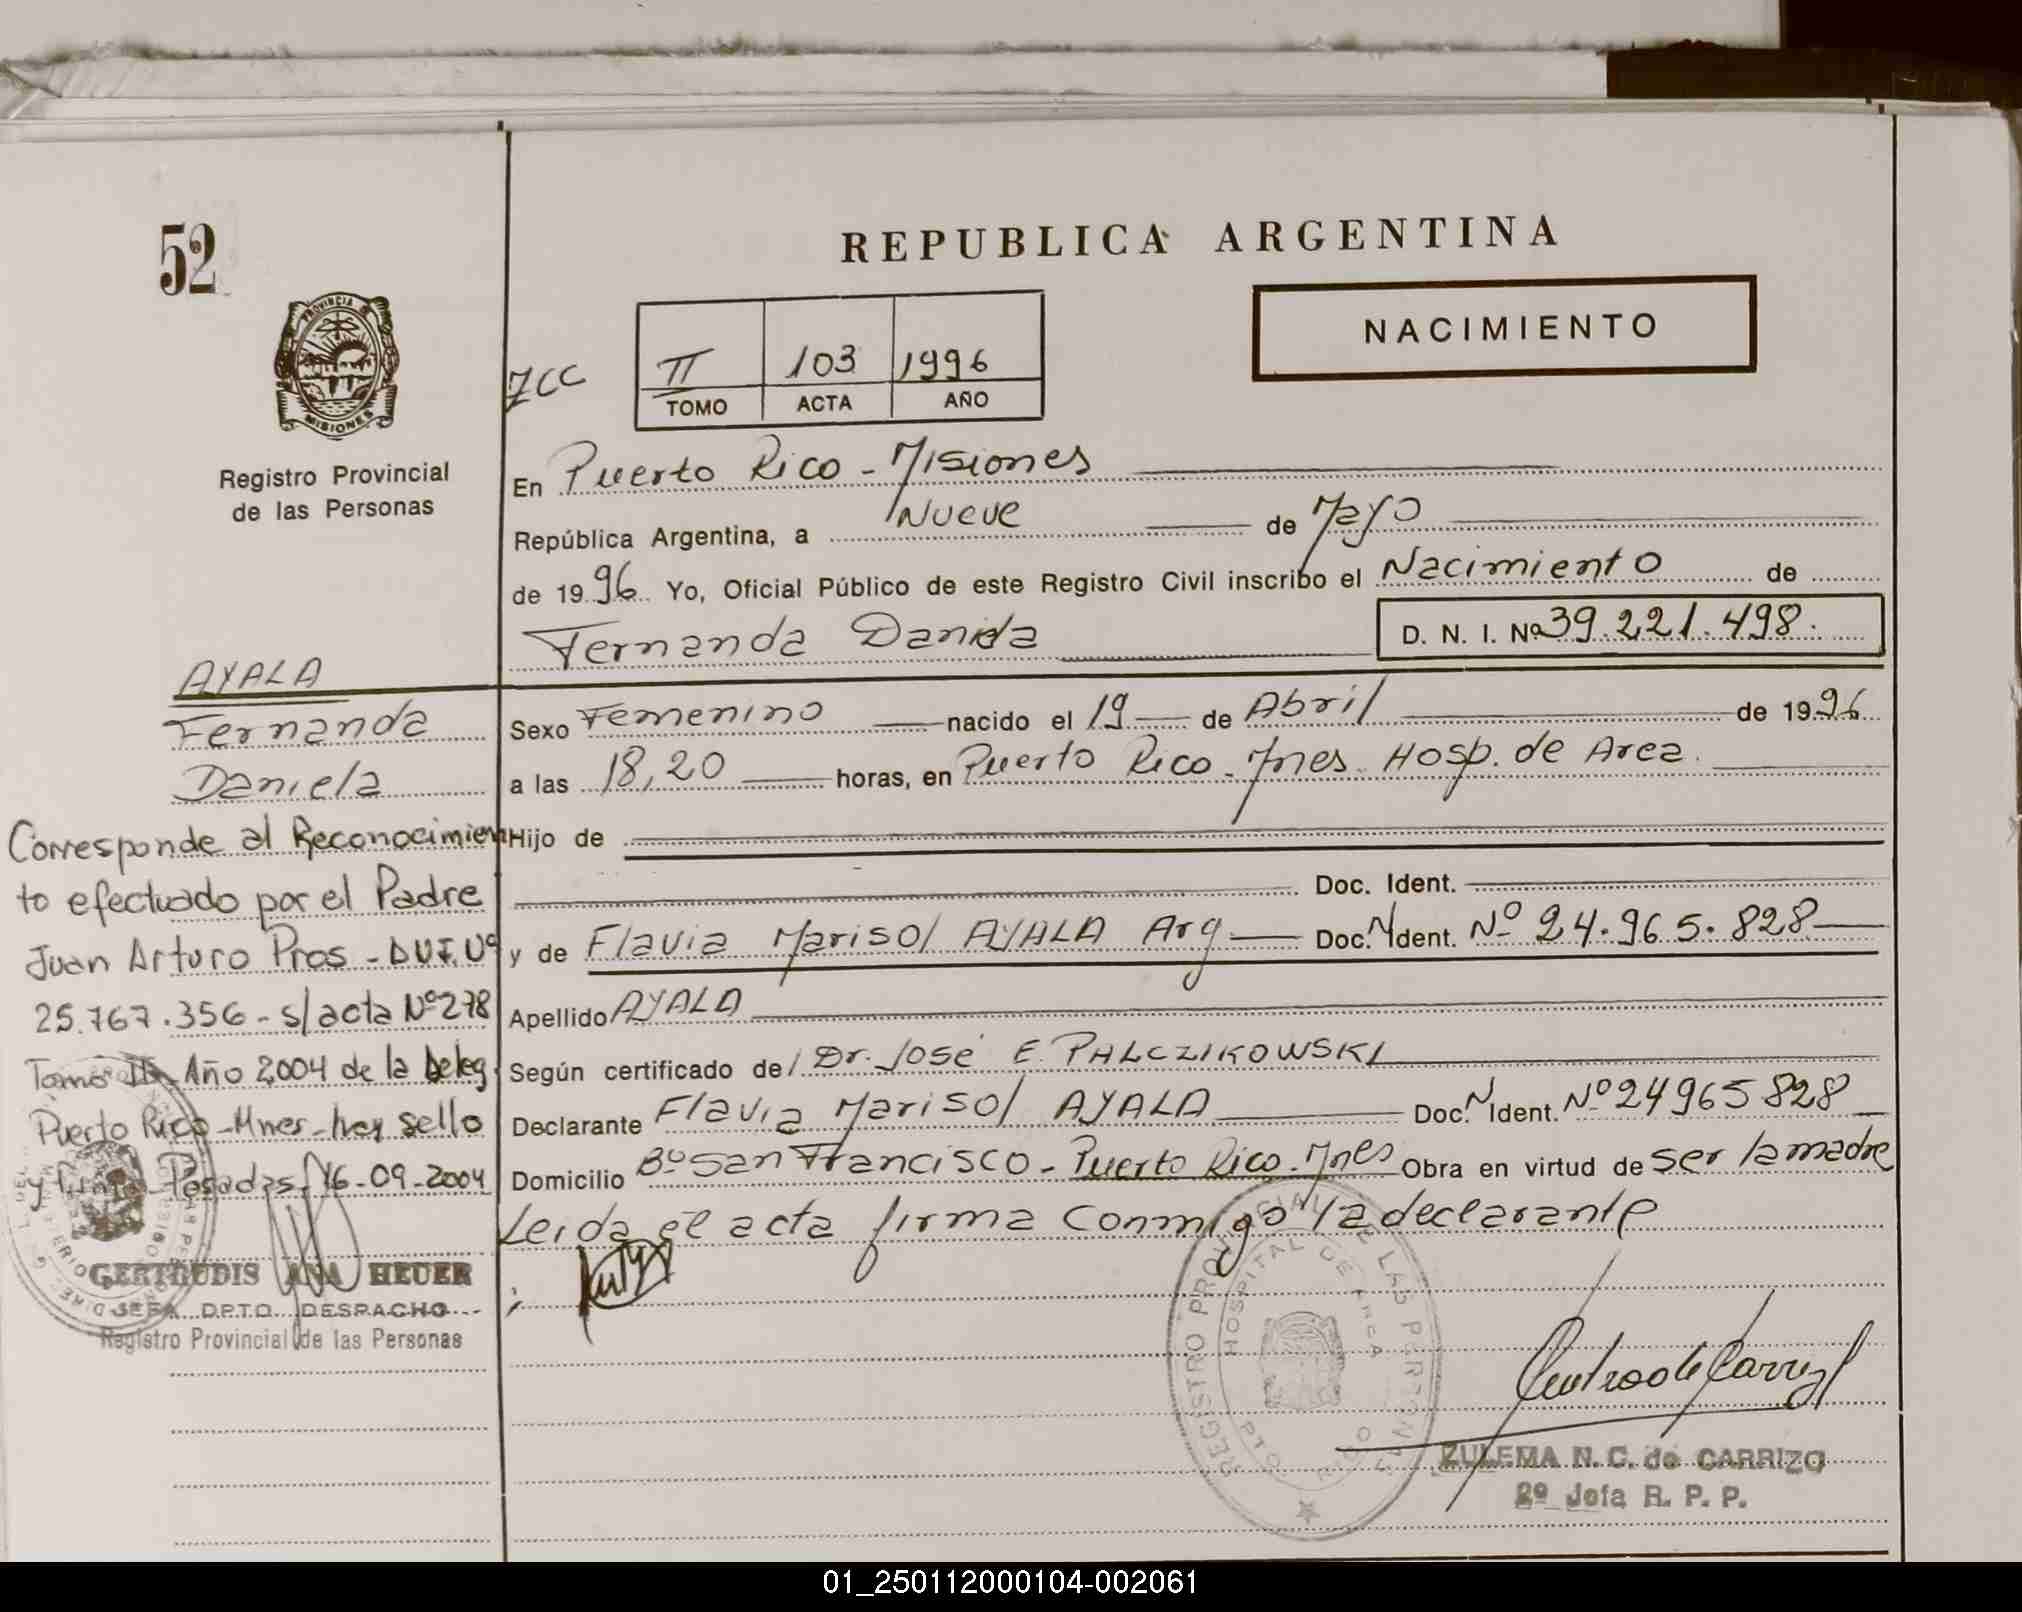 52
REPUBLICA ARGENTINA
NACIMIENTO
PROVINCIA DE
MISIONES
Registro Provincial
de las Personas
ZCC
II 103 1996
TOMO ACTA AÑO
En Puerto Rico - Misiones
República Argentina, a Nueve de Mayo
de 1996 Yo, Oficial Público de este Registro Civil inscribo el Nacimiento de
Fernanda Daniela D. N. I. Nº 39.221.498.
AYALA
Fernanda
Daniela
Corresponde al Reconocimien
to efectuado por el Padre
Juan Arturo Pros - DUI. Nº
25.767.356 - s/acta Nº 278
Tomo Año 2004 de la Deleg.
Puerto Rico - Mnes - hay sello
y firma - Posadas, 16-09-2004
GERTRUDIS ANA HEUER
JEFA DPTO. DESPACHO
Registro Provincial de las Personas
Sexo Femenino nacido el 19 de Abril de 1996
a las 18,20 horas, en Puerto Rico - Mnes. Hosp. de Area.
Hijo de
Doc. Ident.
y de Flavia Marisol AYALA Arg Doc. N. Ident. Nº 24.965.828
Apellido AYALA
Según certificado de Dr. José E. PALCZIKOWSKI
Declarante Flavia Marisol AYALA Doc. N. Ident. Nº 24965828
Domicilio Bº San Francisco - Puerto Rico. Mnes Obra en virtud de ser la madre
Leida el acta firma conmigo la declarante
REGISTRO PROVINCIAL DE LAS PERSONAS
HOSPITAL DE AREA
PTO RICO
ZULEMA N. C. de CARRIZO
2º Jefa R. P. P.
01_250112000104-002061